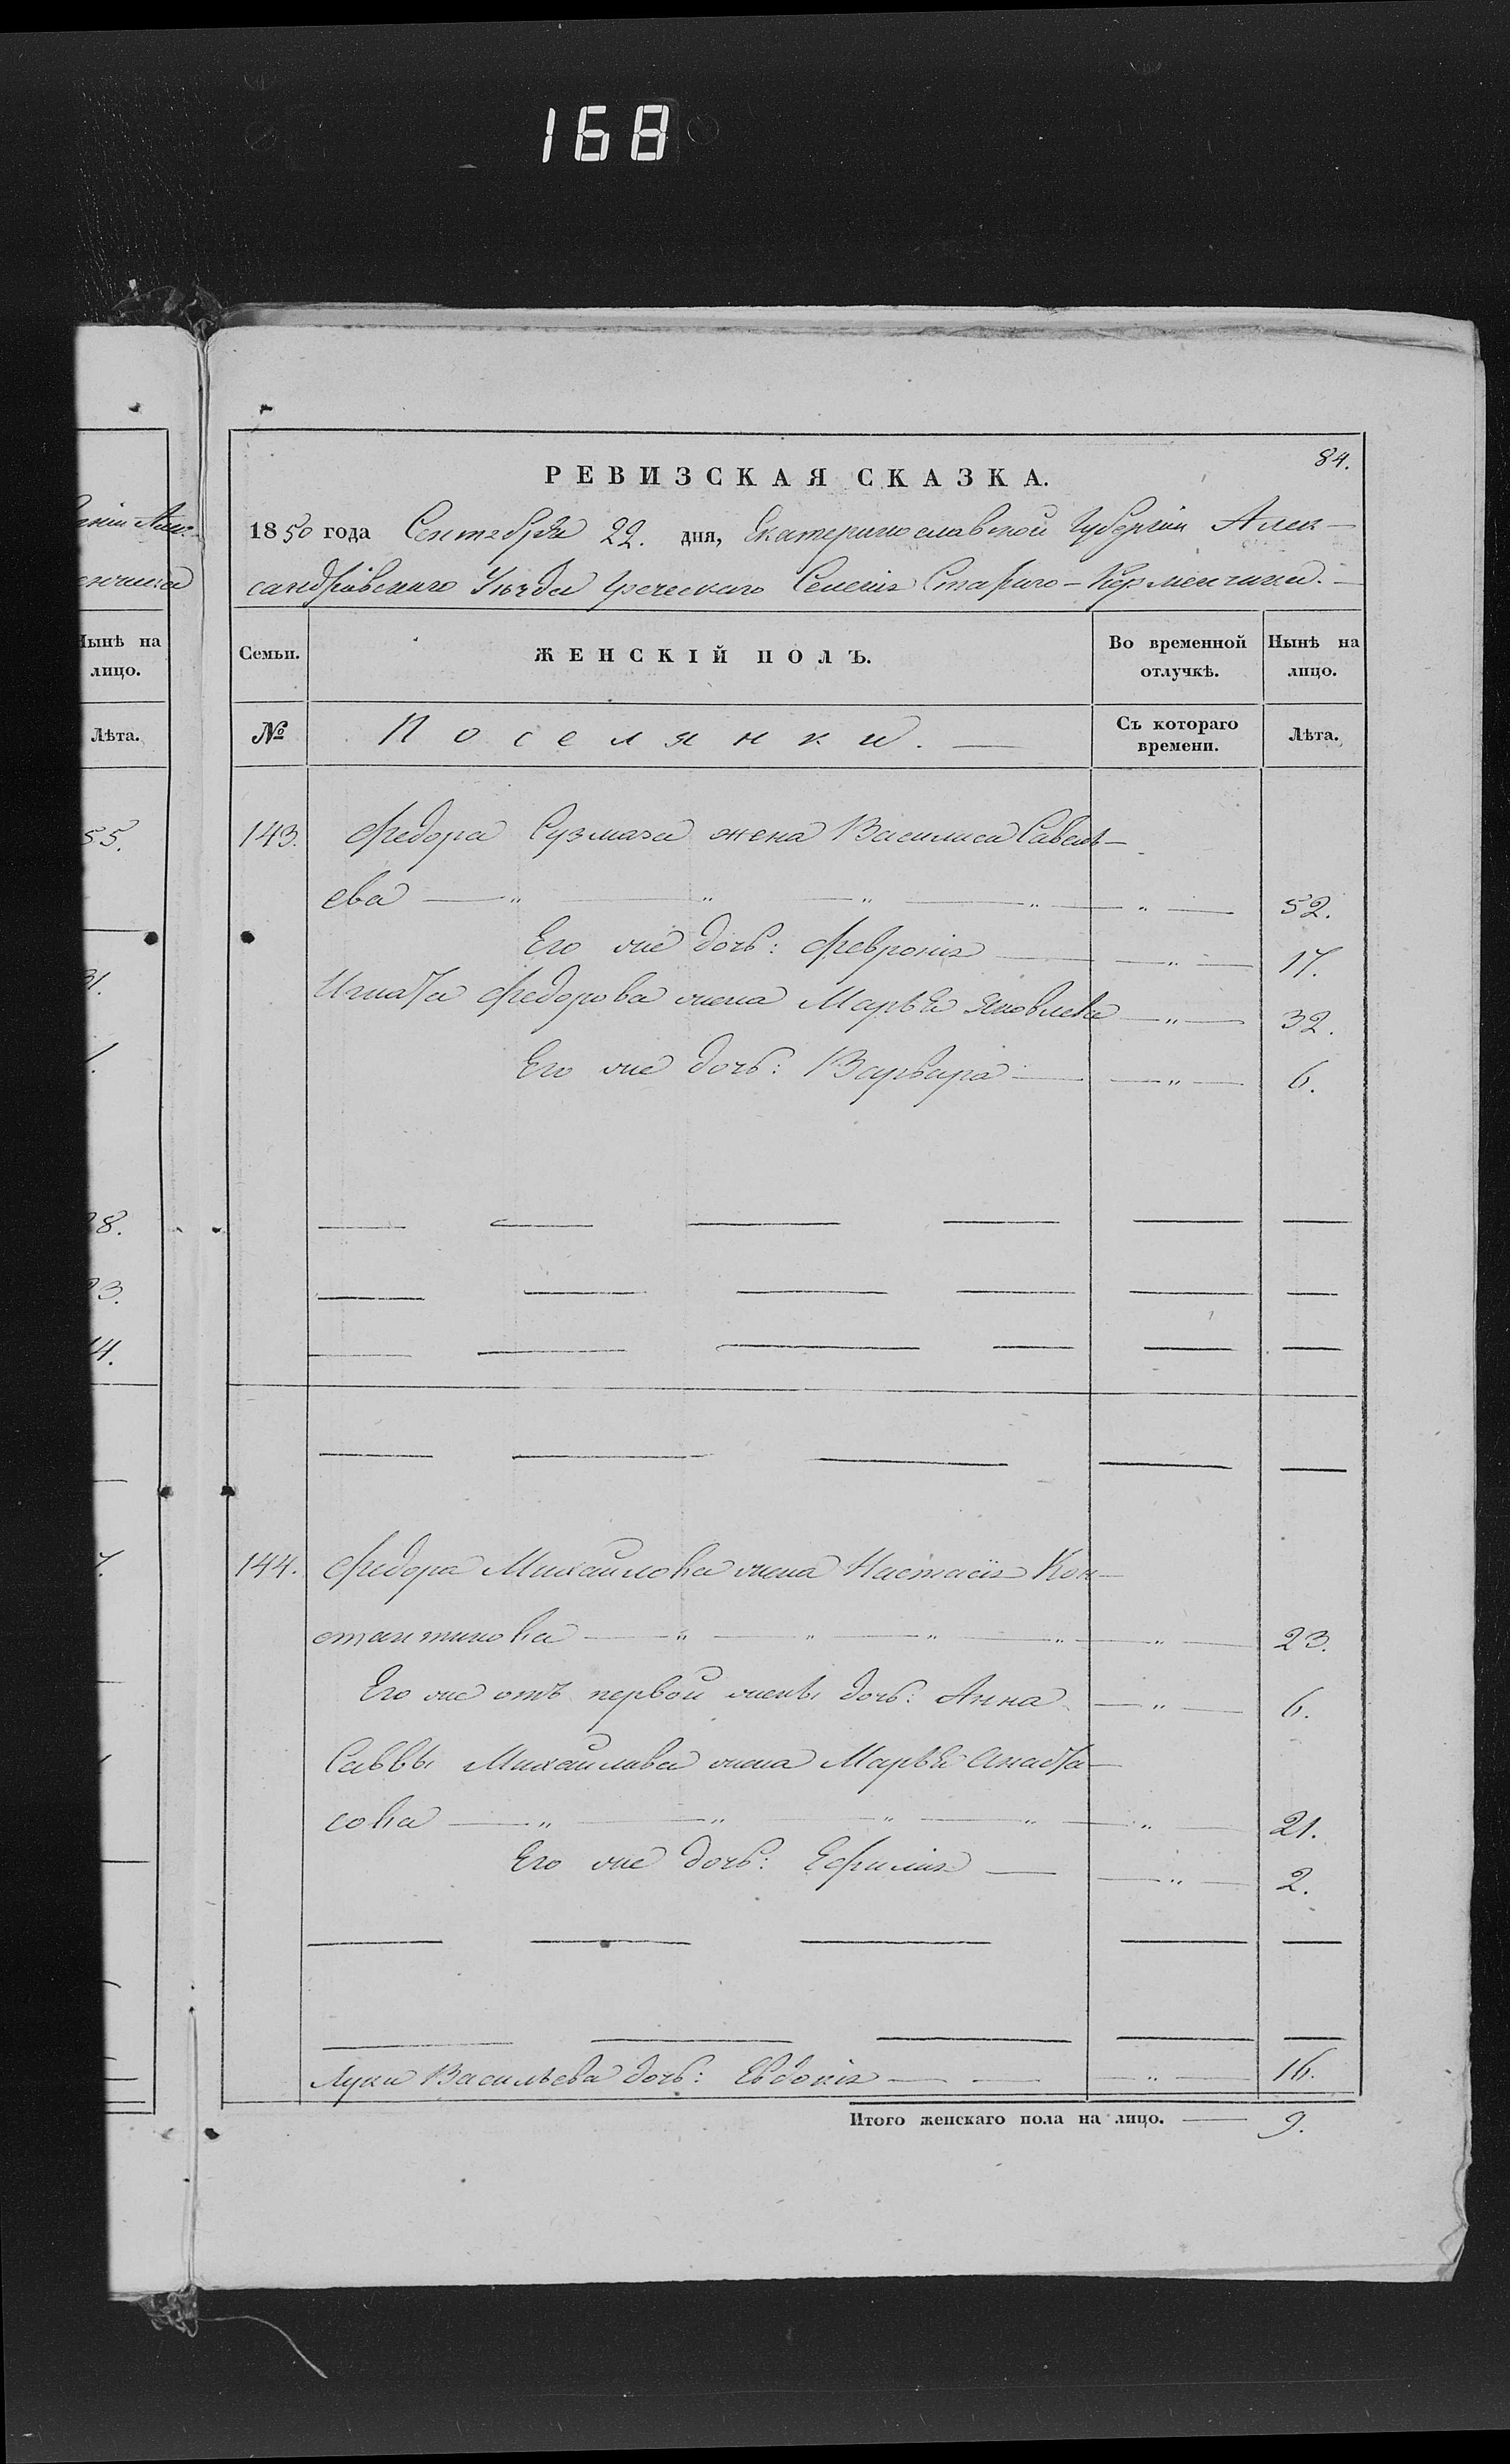 168
84.
РЕВИЗСКАЯ СКАЗКА.
1850 года Сентября 22. дня, Екатеринославской Губерніи Алек-
сандровскаго Уѣзда Греческаго Селенія Стараго-Керменчика.
Семьи.
ЖЕНСКІЙ ПОЛЪ.
Во временной отлучкѣ.
Нынѣ на лицо.
№
Поселянки.
Съ котораго времени.
Лѣта.
143. Федора Сузмаха жена Василиса Савель-
ева 52.
Его же дочь: Февронія 17.
Игната Федорова жена Марья Яковлева 32.
Его же дочь: Варвара 6.
144. Федора Михайлова жена Настасія Кон-
стантинова 23.
Его же отъ первой жены дочь: Анна 6.
Саввы Михайлова жена Марья Анаста-
сова 21.
Его же дочь: Ефимія 2.
Луки Васильева дочь: Евдокія 16.
Итого женскаго пола на лицо. 9.
Нынѣ на
лицо.
Лѣта.
55.